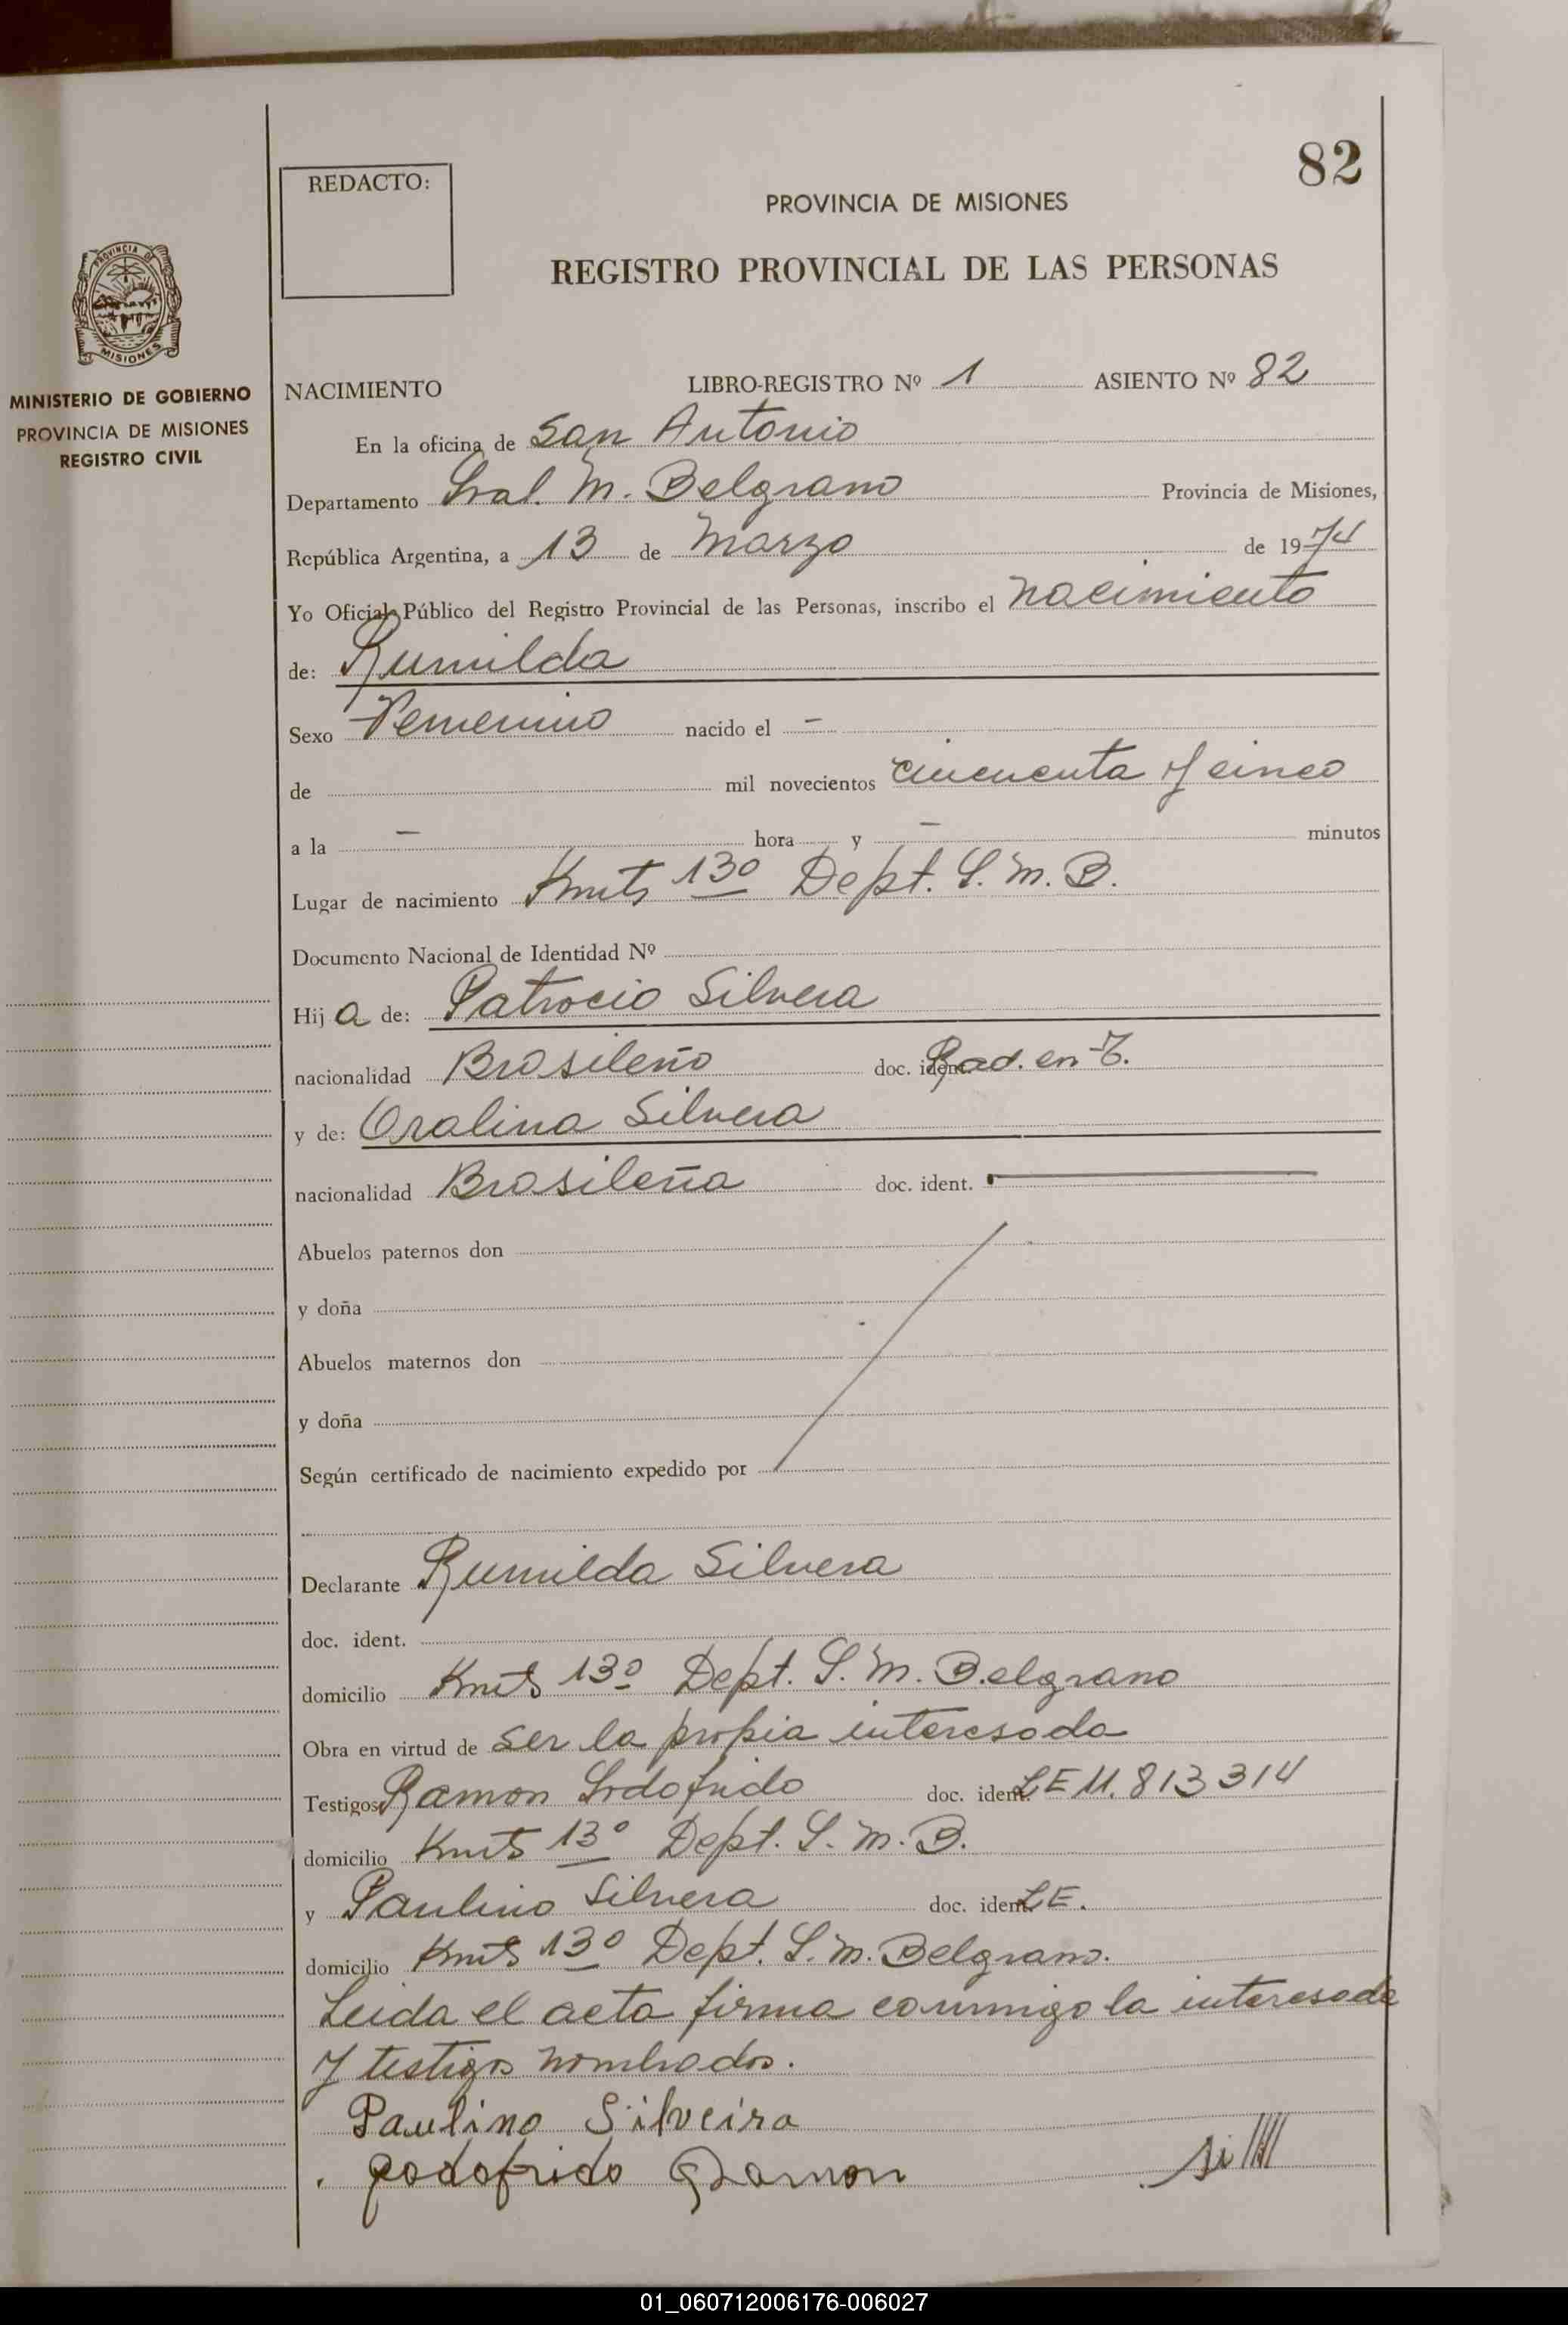 82
REDACTO:
PROVINCIA DE MISIONES
REGISTRO PROVINCIAL DE LAS PERSONAS
PROVINCIA DE
MISIONES
MINISTERIO DE GOBIERNO
PROVINCIA DE MISIONES
REGISTRO CIVIL
NACIMIENTO LIBRO-REGISTRO Nº 1 ASIENTO Nº 82
En la oficina de San Antonio
Departamento Gral. M. Belgrano Provincia de Misiones,
República Argentina, a 13 de Marzo de 1974
Yo Oficial Público del Registro Provincial de las Personas, inscribo el nacimiento
de: Rumilda
Sexo Femenino nacido el -
de mil novecientos cincuenta y cinco
a la - hora y - minutos
Lugar de nacimiento Kmts 130 Dept. G. M. B.
Documento Nacional de Identidad Nº
Hij a de: Patrocio Silvera
nacionalidad Brasileño doc. ident. Rad. en T.
y de: Oralina Silvera
nacionalidad Brasileña doc. ident.
Abuelos paternos don
y doña
Abuelos maternos don
y doña
Según certificado de nacimiento expedido por
Declarante Rumilda Silvera
doc. ident.
domicilio Kmts 130 Dept. G. M. Belgrano
Obra en virtud de ser la propia interesada
Testigos Ramon Godofrido doc. ident. LE 11.813314
domicilio Kmts 130 Dept. G. M. B.
y Paulino Silvera doc. ident. LE.
domicilio Kmts 130 Dept. G. M. Belgrano.
Leida el acta firma conmigo la interesada
y testigos nombrados.
Paulino Silveira
godofrido Ramon
01_060712006176-006027